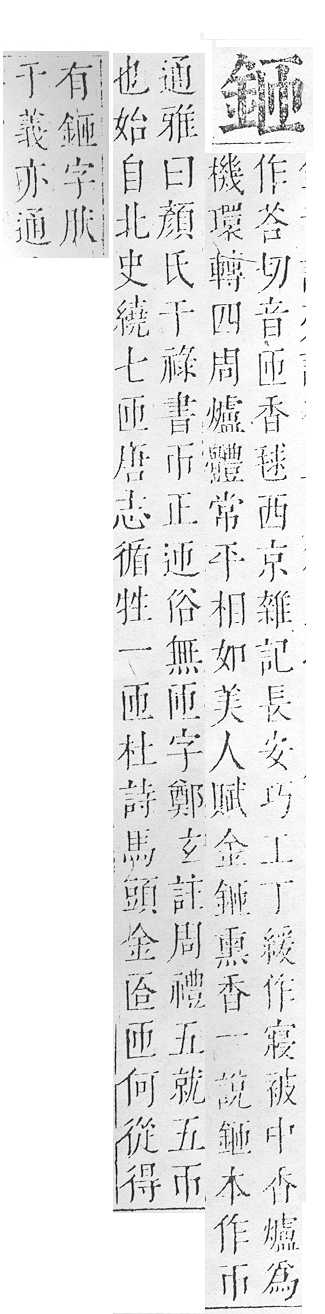 鉔
作荅切音匝香毬西京雜記長安巧工丁緩作寢被中香爐爲
機環轉四周爐體常平相如美人賦金鉔熏香一說鉔本作帀
通雅曰顏氏干祿書帀正迊俗無匝字鄭玄註周禮五就五帀
也始自北史繞七匝唐志循牲一匝杜詩馬頭金匼匝何從得
有鉔字肰
于義亦通